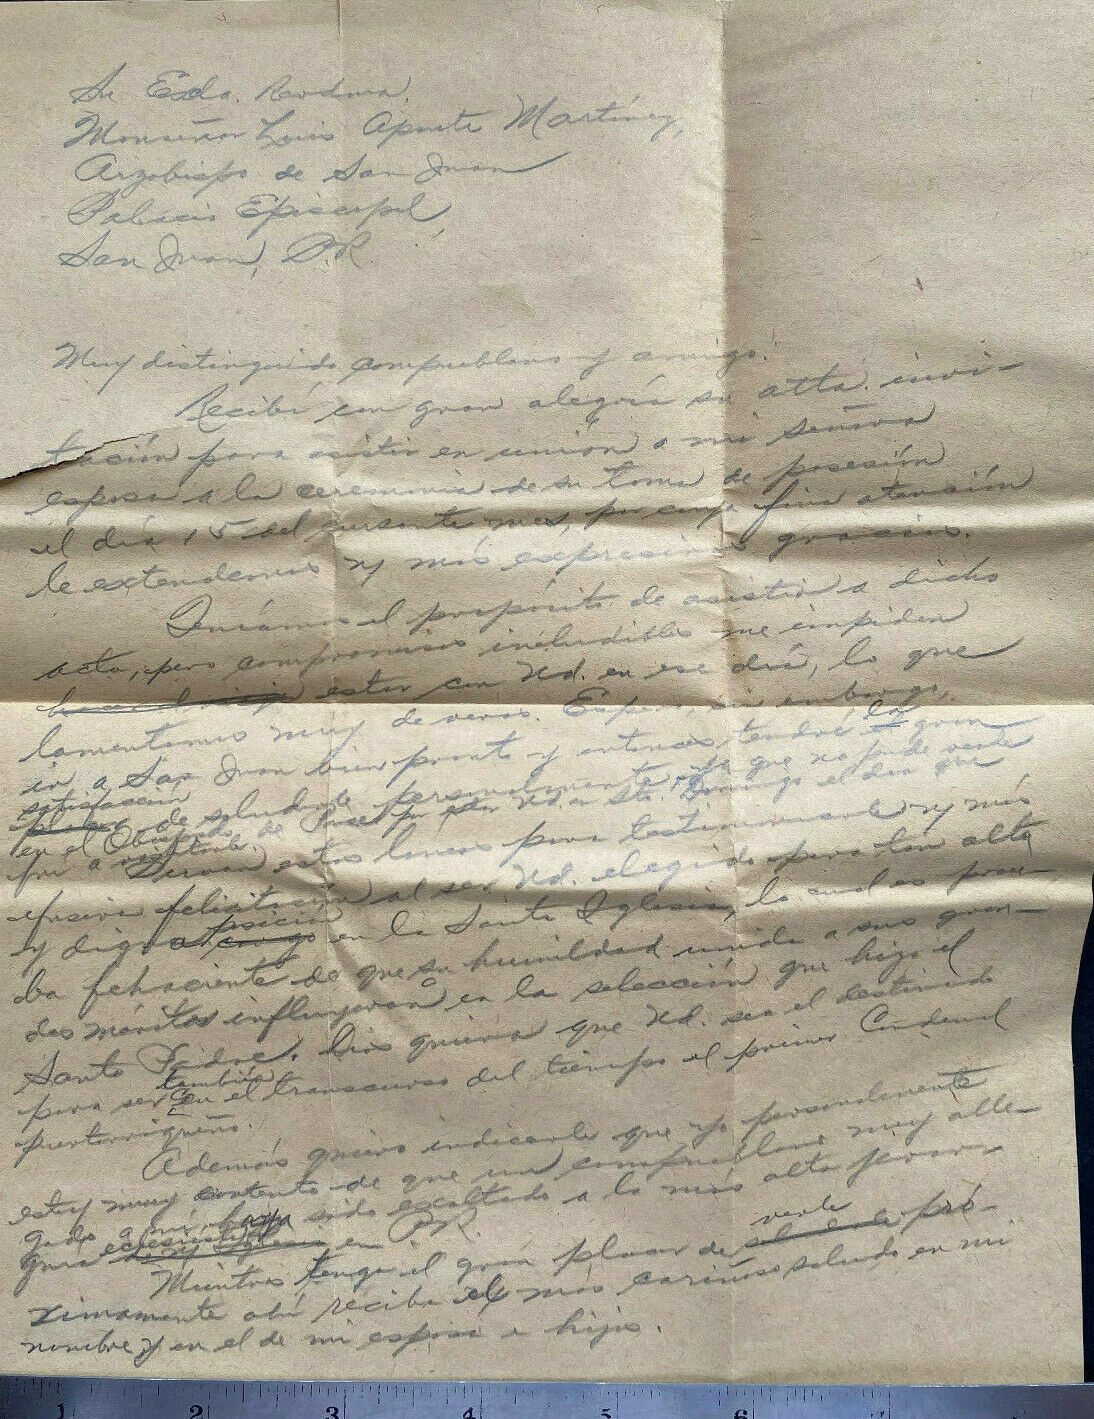 Su Exda. Revdma.
Monseñor Luis Aponte Martínez,
Arzobispo de San Juan
Palacio Episcopal,
San Juan, P.R.
Muy distinguido compueblano y amigo:
Recibí con gran alegría su atta. invi-
tación para asistir en unión a mi señora
esposa a la ceremonia de su toma de posesión
el día 15 del presente mes, por cuya fina atención
le extendemos ny más expresivas gracias.
Teníamos el propósito de asistir a dicho
acto, pero compromisos ineludibles me impiden
estar con Ud. en ese día, lo que
lamentamos muy de veras. Espero, sin embargo,
ir a San Juan bien pronto y entonces tendré la gran
satisfacción de saludarle personalmente, ya que no pude verle
en el Obispado de Ponce por estar Ud. en Sto. Domingo el día que
fui a visitarle.
Sirvan estas líneas para testimoniarle ny más
efusiva felicitación al ser Ud. elegido para tan alta
y digna posición cargo en la Santa Iglesia, lo cual es prue-
ba fehaciente de que su humildad unida a sus gran-
des méritos influyeron en la selección que hizo el
Santo Padre. Dios quiera que Ud. sea el destinado
para ser también en el transcurso del tiempo el primer Cardenal
puertorriqueño.
Además quiero indicarle que yo personalmente
estoy muy contento de que un compueblano muy alle-
gado a mí haya sido exaltado a la más alta jerar-
quía eclesiástica en P.R.
Mientras tenga el gran placer de verle saludarle pró-
ximamente ahí reciba el más cariñoso saludo en mi
nombre y en el de mi esposa e hijos.
1 2 3 4 5 6